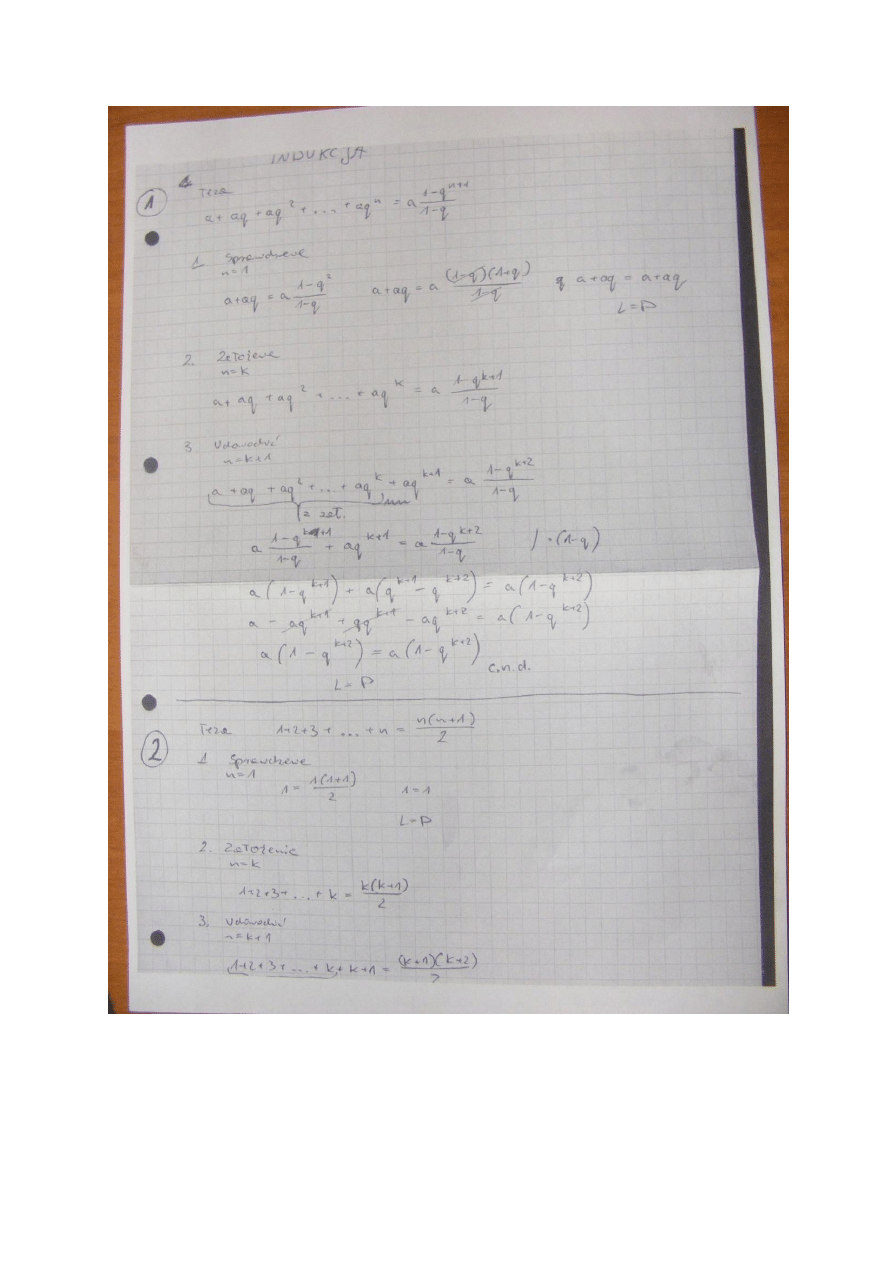 INDUKCJA
1
Teza
a + aq + aq² + ... + aqⁿ = a (1-qⁿ⁺¹)/(1-q)
1. Sprawdzenie
n=1
a+aq = a (1-q²)/(1-q)   a+aq = a (1-q)(1+q)/(1-q)   a+aq = a+aq
L=P
2. Założenie
n=k
a + aq + aq² + ... + aqᵏ = a (1-qᵏ⁺¹)/(1-q)
3. Udowodnić
n=k+1
a + aq + aq² + ... + aqᵏ + aqᵏ⁺¹ = a (1-qᵏ⁺²)/(1-q)
z zał.
a (1-qᵏ⁺¹)/(1-q) + aqᵏ⁺¹ = a (1-qᵏ⁺²)/(1-q)   / · (1-q)
a(1-qᵏ⁺¹) + a(qᵏ⁺¹ - qᵏ⁺²) = a(1-qᵏ⁺²)
a - aqᵏ⁺¹ + aqᵏ⁺¹ - aqᵏ⁺² = a(1-qᵏ⁺²)
a(1-qᵏ⁺²) = a(1-qᵏ⁺²)
c.n.d.
L=P
2
Teza   1+2+3+ ... +n = n(n+1)/2
1. Sprawdzenie
n=1
1 = 1(1+1)/2   1=1
L=P
2. Założenie
n=k
1+2+3+ ... + k = k(k+1)/2
3. Udowodnić
n=k+1
1+2+3+ ... + k + k+1 = (k+1)(k+2)/2